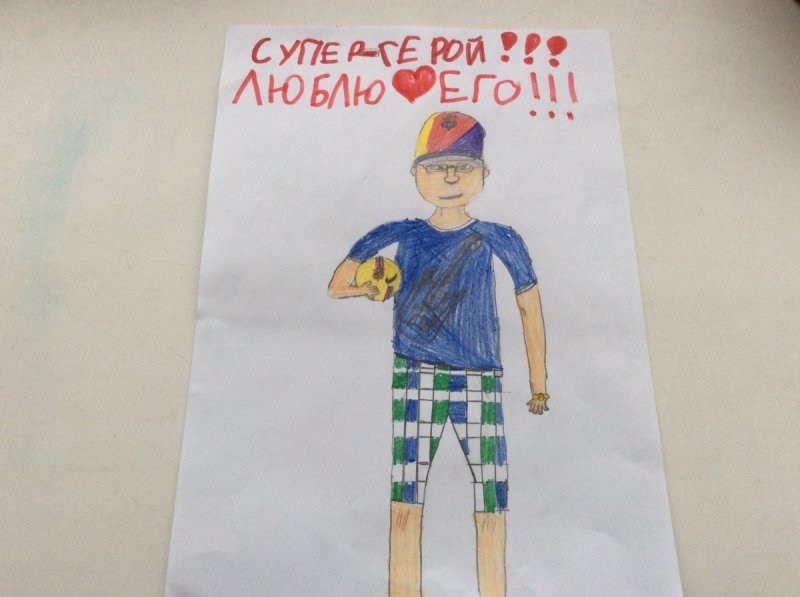 СУПЕР-ГЕРОЙ!!!
ЛЮБЛЮ❤ЕГО!!!